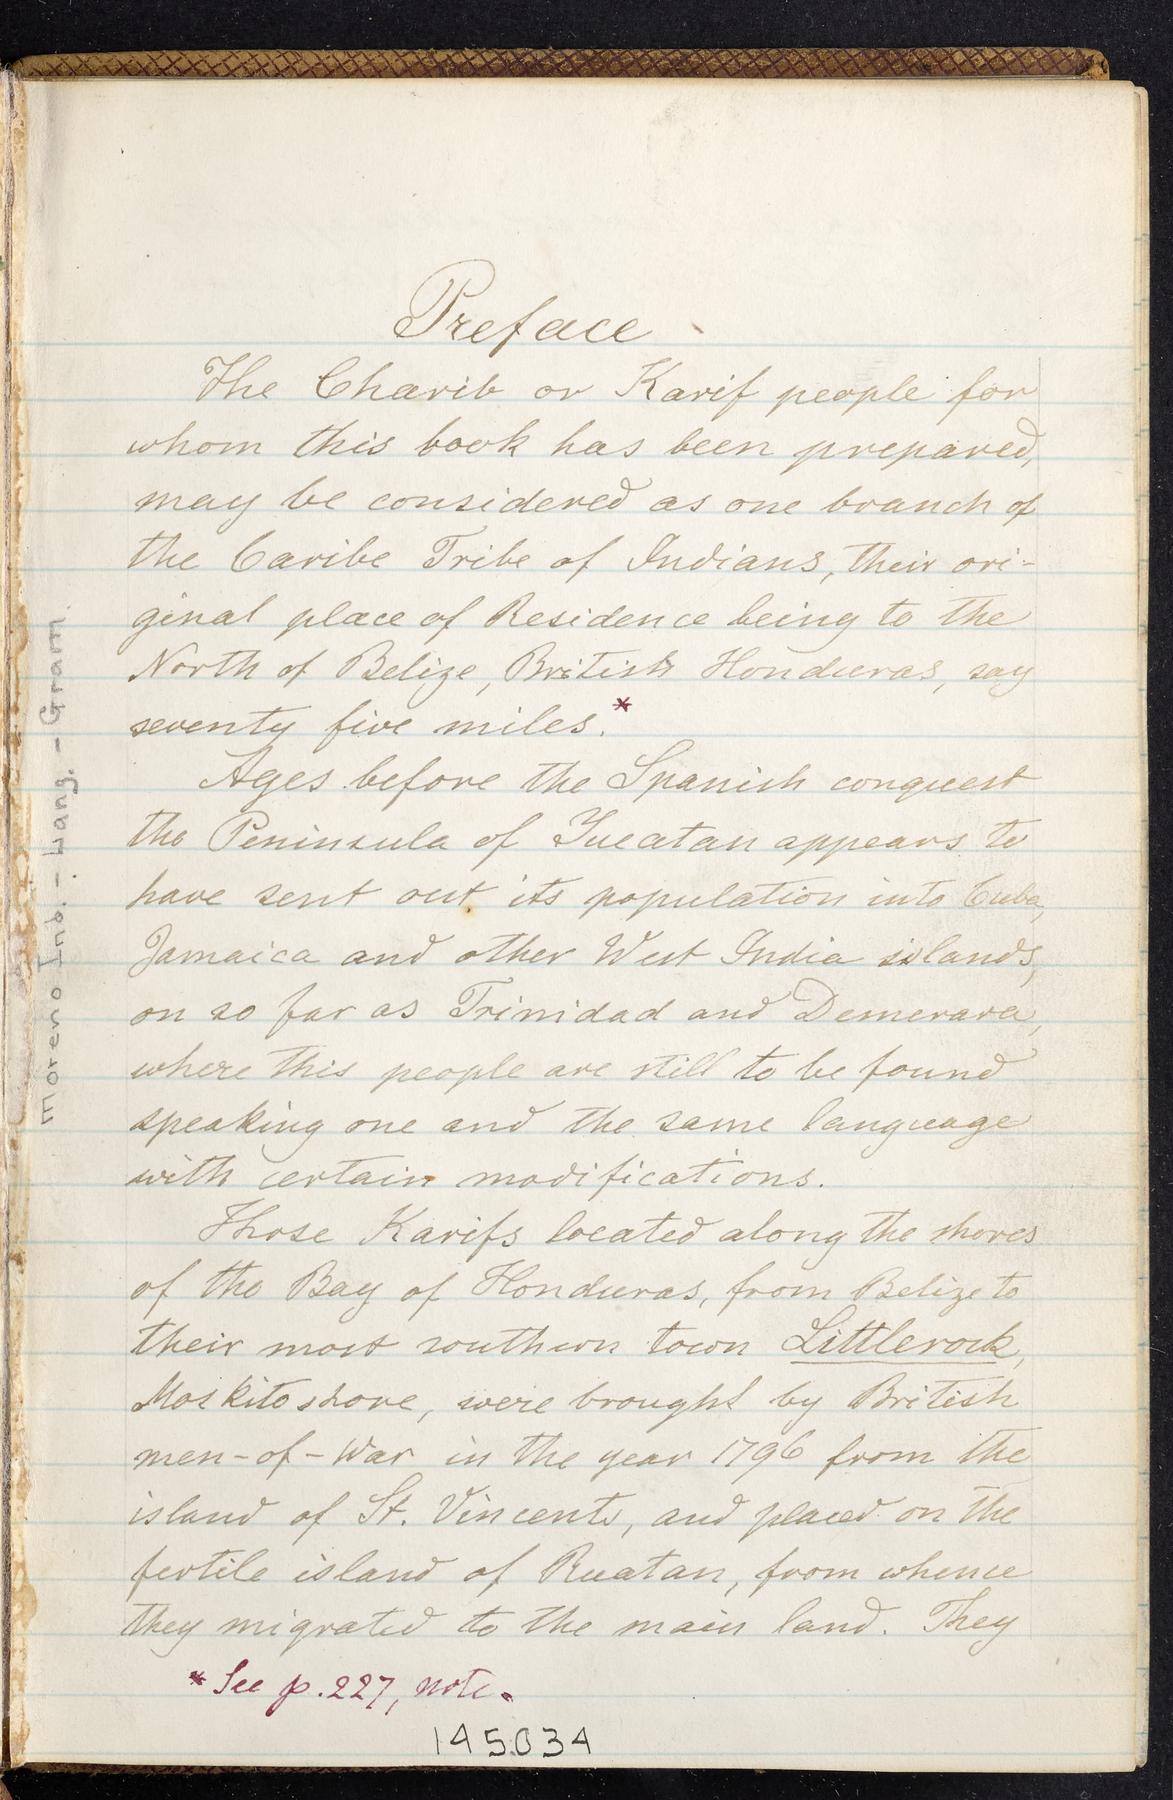 Preface
The Charib or Karif people for
whom this book has been prepared,
may be considered as one branch of
the Caribe Tribe of Indians, their ori-
ginal place of Residence being to the
North of Belize, British Honduras, say
seventy five miles.*
Ages before the Spanish conquest
the Peninsula of Yucatan appears to
have sent out its population into Cuba,
Jamaica and other West India islands,
on so far as Trinidad and Demerara,
where this people are still to be found
speaking one and the same language
with certain modifications.
Those Karifs located along the shores
of the Bay of Honduras, from Belize to
their most southern town Littlerock,
Moskito shore, were brought by British
men-of-War in the year 1796 from the
island of St. Vincents, and placed on the
fertile island of Ruatan, from whence
they migrated to the main land. They
* See p. 227, note.
145034
Moreno Ind. - Lang. - Gram.